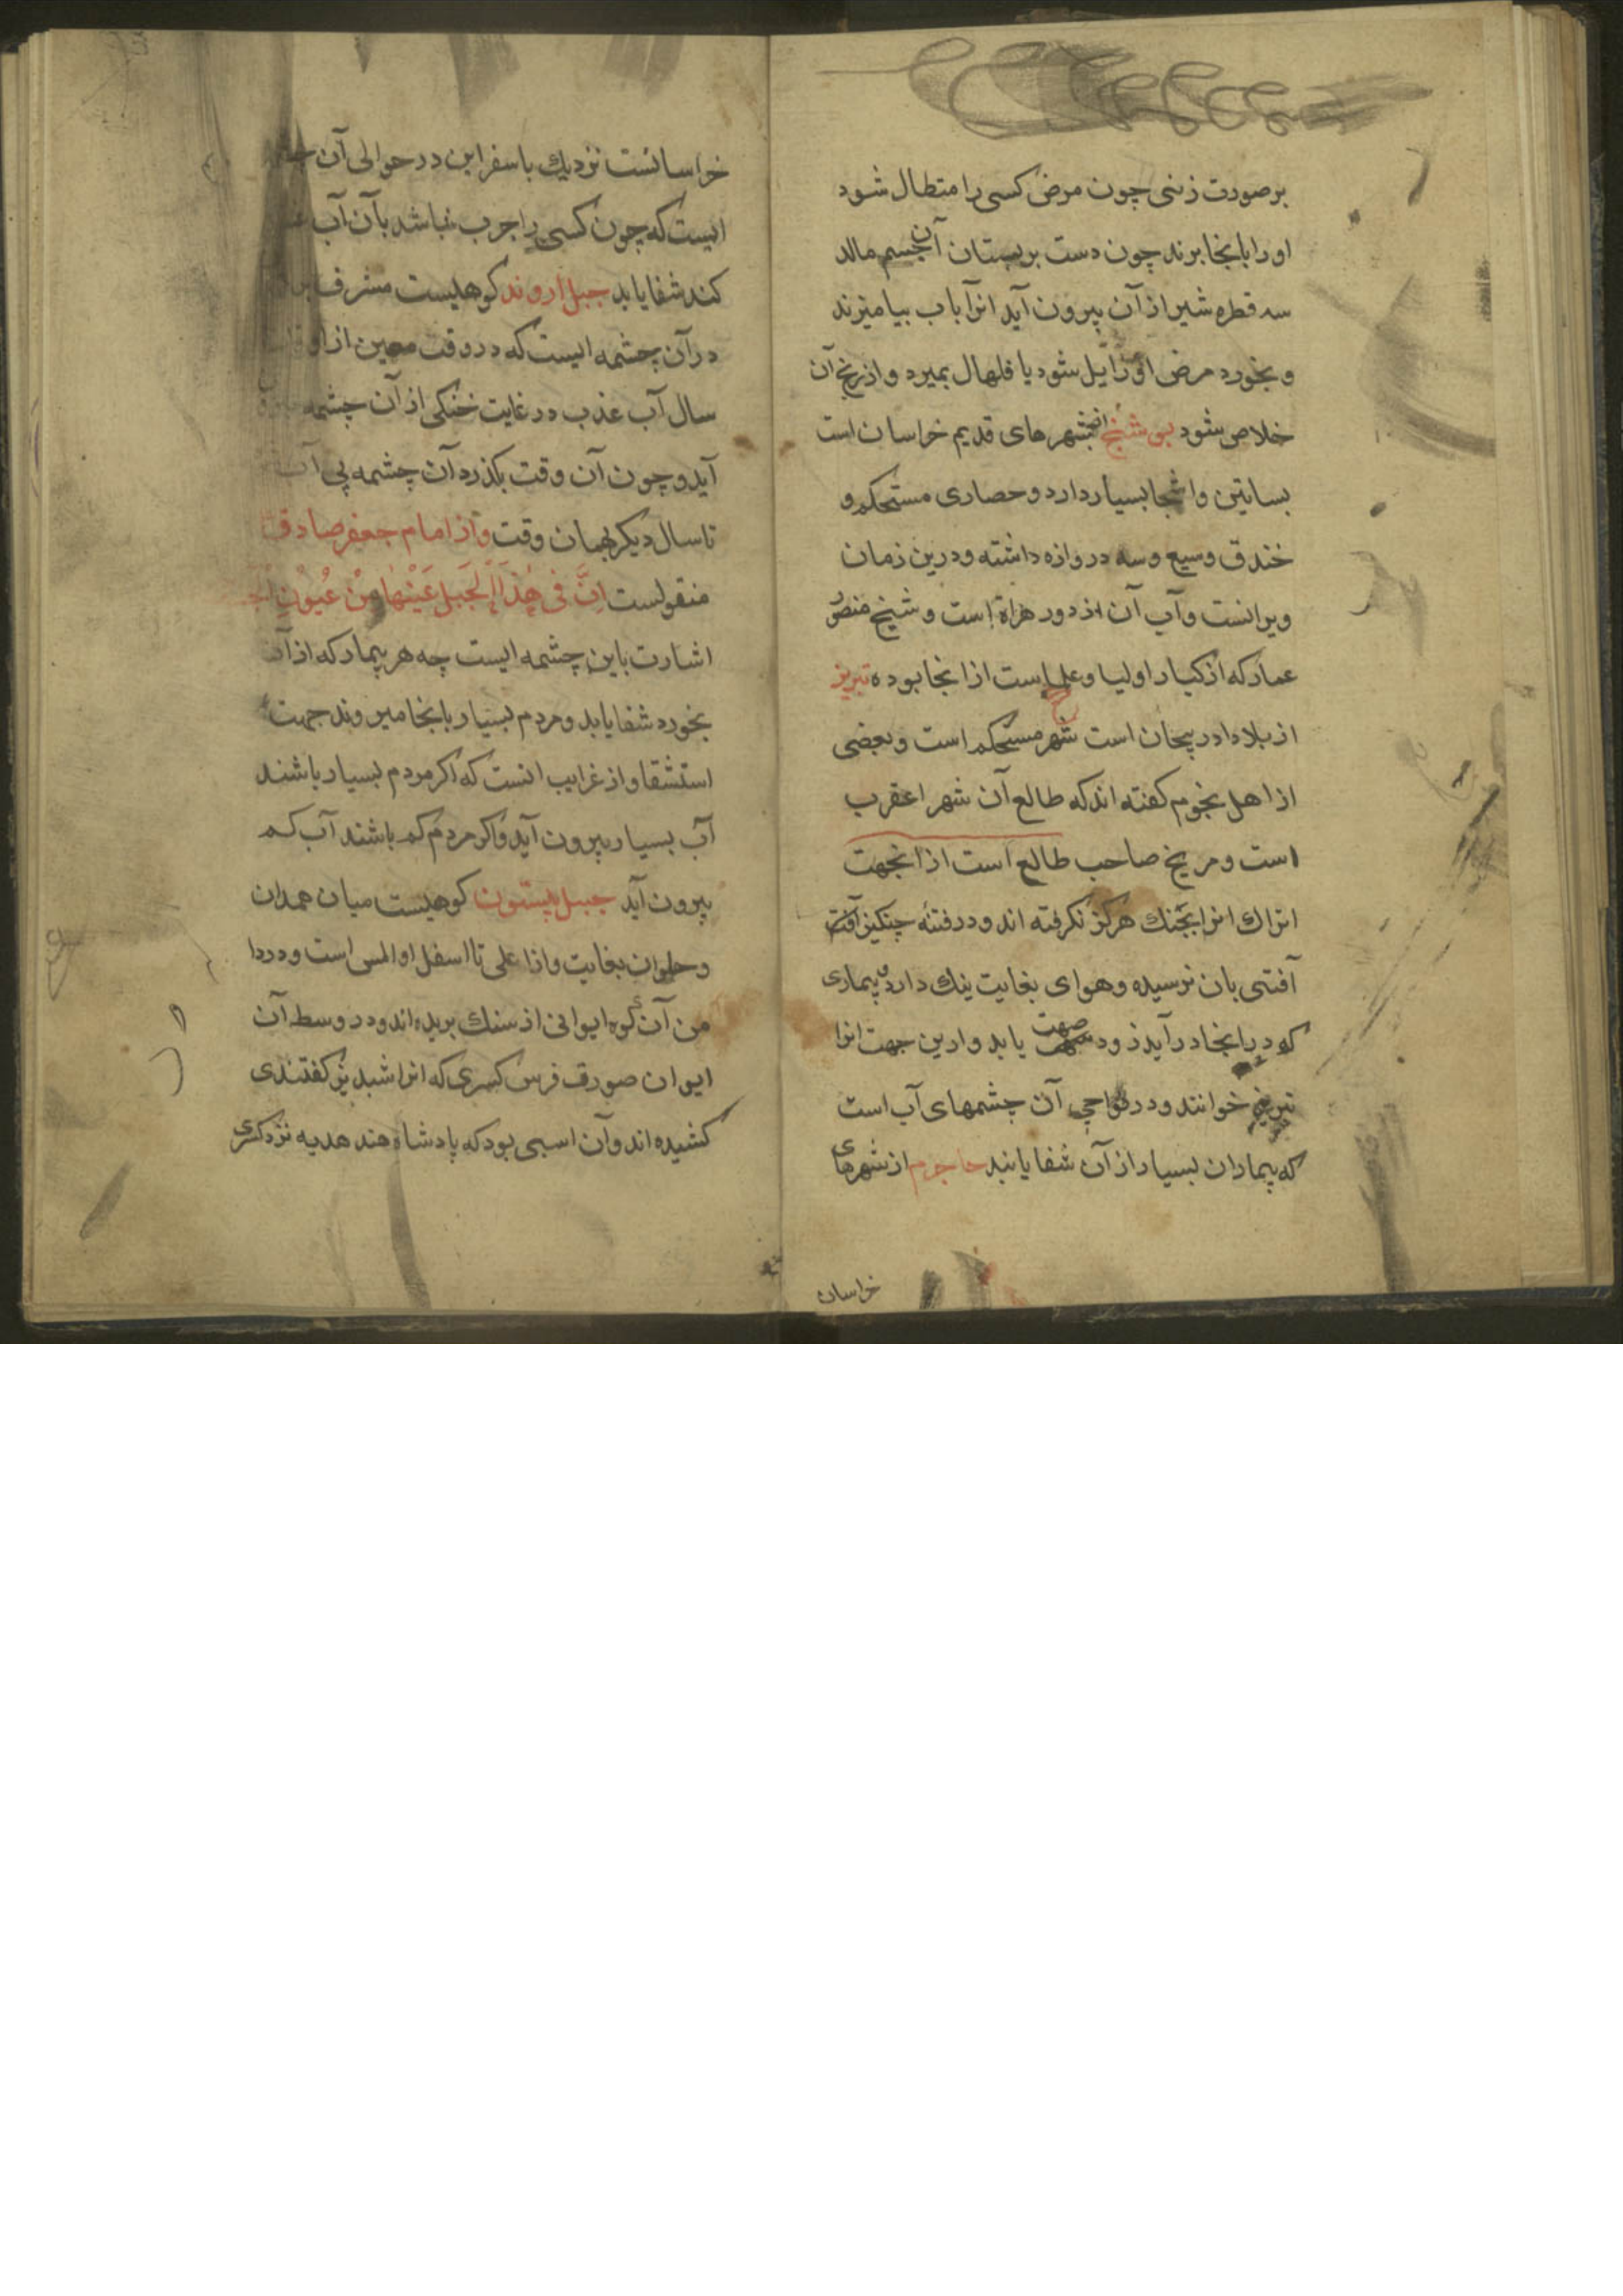 بر صورت زنی چون مرض کسی را متطال شود
او را بانجا برند چون دست بر پستان آن جسم مالد
سه قطره شیر از آن بیرون آید انرا باب بیامیزند
و بخورد مرض او زایل شود یا فلهال بمیرد و از رنج آن
خلاص شود بوشنج از شهرهای قدیم خراسان است
بساتین و اشجار بسیار دارد و حصاری مستحکم و
خندق وسیع و سه دروازه داشته و درین زمان
ویرانست و آب آن از دور هراة است و شیخ منصور
عمار که از کبار اولیا و علماست از انجا بوده تبریز
از بلاد ادربیجان است شهر مستحکم است و بعضی
از اهل نجوم کفته اند که طالع آن شهر اعقرب
است و مریخ صاحب طالع است از انجهت
اتراك انرا بجنك هرکز نکرفته اند و در فتنه چنکیز
آفتی بان نرسیده و هوای بغایت نیك دارد و بیماری
که در انجا در آید زود صحت یابد و ازین جهت انرا
تبریز خوانند و در نواحی آن چشمهای آب است
که بیماران بسیار از آن شفا یابند جاجرم از شهرهای
خراسان
خراسانست نزدیك باسفراین در حوالی آن
ایست که چون کسی را جرب باشد بآن آب
کند شفا یابد جبل اروند کوهیست مشرف
در آن چشمه ایست که در وقت معین از
سال آب عذب در غایت خنکی از آن چشمه
آید و چون آن وقت بکذرد آن چشمه بی آب
تا سال دیکر بهمان وقت و از امام جعفر صادق
منقولست اِنَّ فی هٰذَا الْجَبَل عَیْنًا مِنْ عُیُونِ
اشارت باین چشمه ایست چه هر بیمار که از آن
بخورد شفا یابد و مردم بسیار بانجا میروند جهت
استشفا و از غرایب انست که اکر مردم بسیار باشند
آب بسیار بیرون آید و اکر مردم کم باشند آب کم
بیرون آید جبل بیستون کوهیست میان همدان
و حلوان بغایت و از اعلی تا اسفل او املس است و در دا
من آن کوه ایوانی از سنك بریده اند و در وسط آن
ایوان صورت فرس کسری که انرا شبدیز کفتندی
کشیده اند و آن اسبی بود که پادشاه هند هدیه نزد کسری